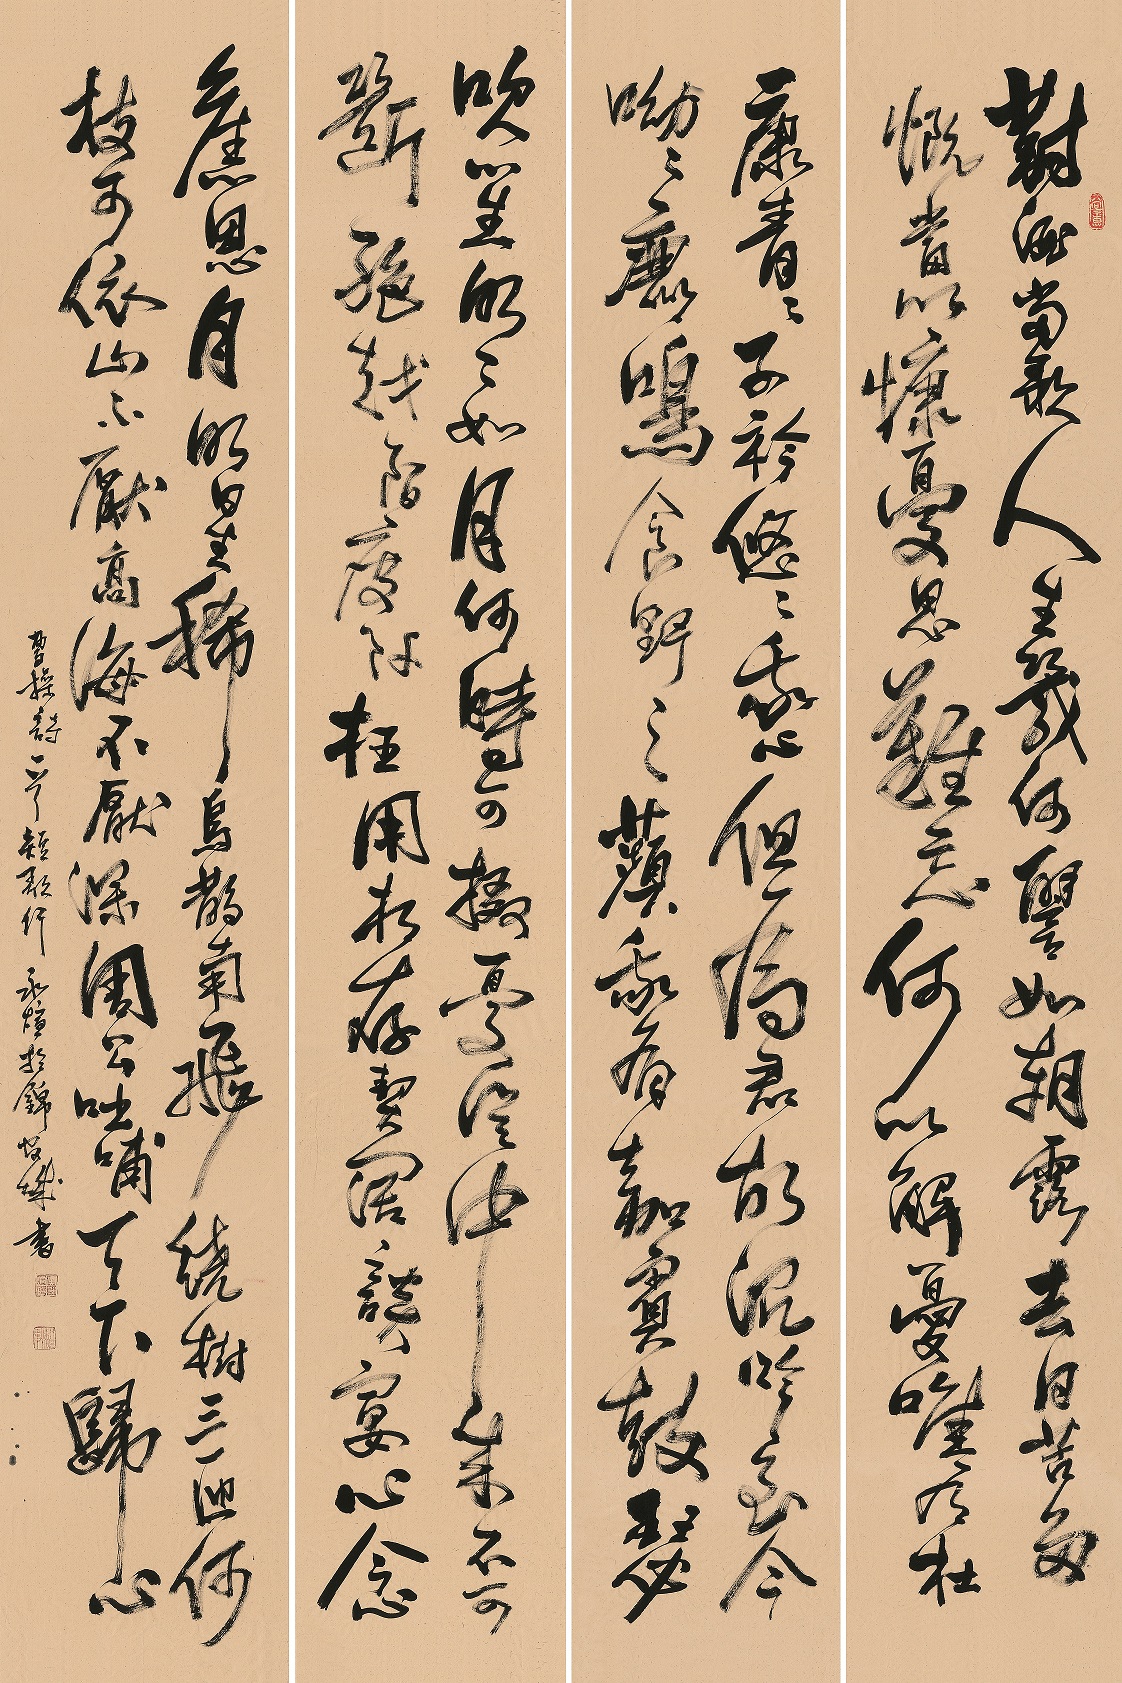 對酒當歌人生幾何譬如朝露去日苦多
慨當以慷憂思難忘何以解憂唯有杜
康青々子衿悠々我心但為君故沉吟至今
呦々鹿鳴食野之蘋我有嘉賓鼓瑟
吹笙明々如月何時可掇憂從中來不可
斷絕越陌度阡枉用相存契闊談宴心念
舊恩月明星稀烏鵲南飛繞樹三匝何
枝可依山不厭高海不厭深周公吐哺天下歸心
曹操詩一首短歌行 永煊於錦城書